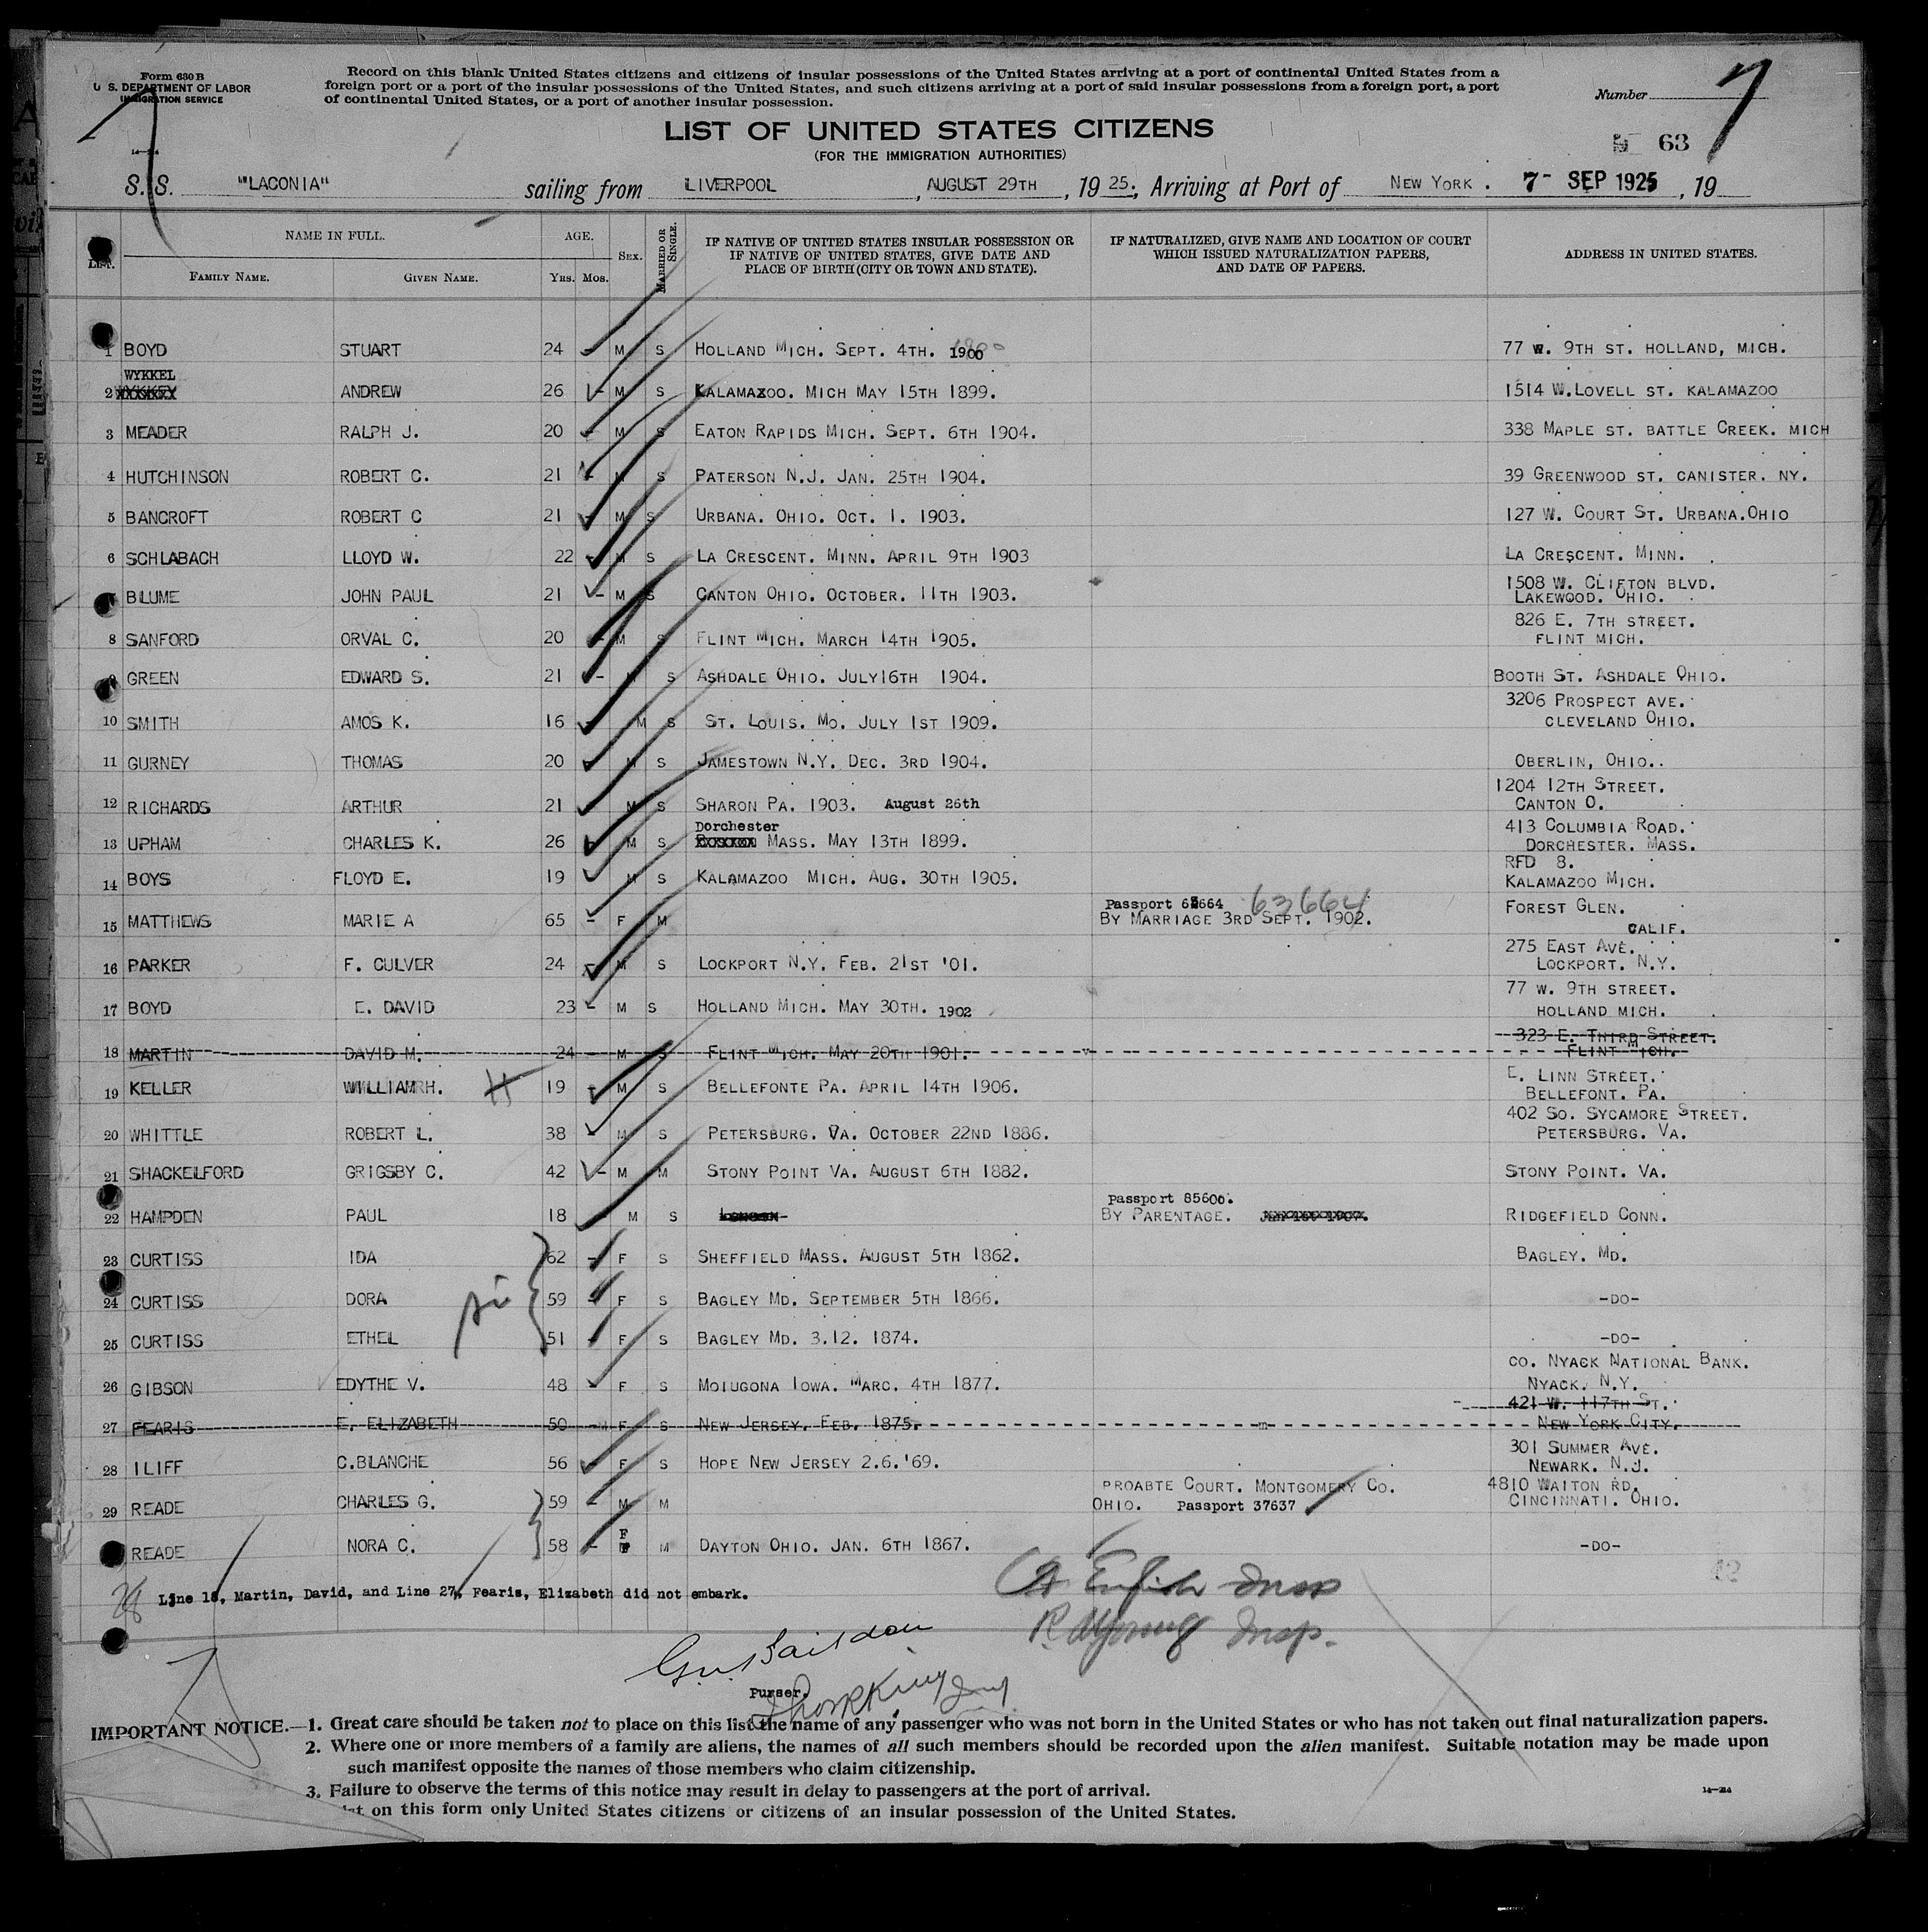 Form 630 B
U. S. DEPARTMENT OF LABOR
IMMIGRATION SERVICE
Record on this blank United States citizens and citizens of insular possessions of the United States arriving at a port of continental United States from a
foreign port or a port of the insular possessions of the United States, and such citizens arriving at a port of said insular possessions from a foreign port, a port
of continental United States, or a port of another insular possession.
Number 7
LIST OF UNITED STATES CITIZENS
(FOR THE IMMIGRATION AUTHORITIES)
63
S. S. "LACONIA" sailing from LIVERPOOL, AUGUST 29TH, 19 25., Arriving at Port of NEW YORK. 7- SEP 1925, 19
LIST. NAME IN FULL. AGE. SEX. MARRIED OR SINGLE. IF NATIVE OF UNITED STATES INSULAR POSSESSION OR IF NATIVE OF UNITED STATES, GIVE DATE AND PLACE OF BIRTH (CITY OR TOWN AND STATE). IF NATURALIZED, GIVE NAME AND LOCATION OF COURT WHICH ISSUED NATURALIZATION PAPERS, AND DATE OF PAPERS. ADDRESS IN UNITED STATES.
FAMILY NAME. GIVEN NAME. Yrs. Mos.
1 BOYD STUART 24 - M S HOLLAND MICH. SEPT. 4TH. 1900 77 W. 9TH ST. HOLLAND, MICH.
WYKKEL
2 ANDREW 26 - M S KALAMAZOO. MICH MAY 15TH 1899. 1514 W.LOVELL ST. KALAMAZOO
3 MEADER RALPH J. 20 - M S EATON RAPIDS MICH. SEPT. 6TH 1904. 338 MAPLE ST. BATTLE CREEK. MICH
4 HUTCHINSON ROBERT C. 21 - M S PATERSON N.J. JAN. 25TH 1904. 39 GREENWOOD ST. CANISTER. NY.
5 BANCROFT ROBERT C 21 - M S URBANA. OHIO. OCT. 1. 1903. 127 W. COURT ST. URBANA.OHIO
6 SCHLABACH LLOYD W. 22 - M S LA CRESCENT. MINN. APRIL 9TH 1903 LA CRESCENT. MINN.
BLUME JOHN PAUL 21 - M S CANTON OHIO. OCTOBER. 11TH 1903. 1508 W. CLIFTON BLVD.
LAKEWOOD. OHIO.
8 SANFORD ORVAL C. 20 - M S FLINT MICH. MARCH 14TH 1905. 826 E. 7TH STREET.
FLINT MICH.
9 GREEN EDWARD S. 21 - M S ASHDALE OHIO. JULY16TH 1904. BOOTH ST. ASHDALE OHIO.
10 SMITH AMOS K. 16 - M S ST. LOUIS. MO. JULY 1ST 1909. 3206 PROSPECT AVE.
CLEVELAND OHIO.
11 GURNEY THOMAS 20 - M S JAMESTOWN N.Y. DEC. 3RD 1904. OBERLIN, OHIO..
12 RICHARDS ARTHUR 21 - M S SHARON PA. 1903. August 26th 1204 12TH STREET.
CANTON O.
Dorchester
13 UPHAM CHARLES K. 26 - M S MASS. MAY 13TH 1899. 413 COLUMBIA ROAD.
DORCHESTER. MASS.
14 BOYS FLOYD E. 19 M S KALAMAZOO MICH. AUG. 30TH 1905. RFD 8.
KALAMAZOO MICH.
Passport 63664 63664
15 MATTHEWS MARIE A 65 - F M BY MARRIAGE 3RD SEPT. 1902. FOREST GLEN.
CALIF.
16 PARKER F. CULVER 24 - M S LOCKPORT N.Y. FEB. 21ST '01. 275 EAST AVE.
LOCKPORT. N.Y.
17 BOYD E. DAVID 23 - M S HOLLAND MICH. MAY 30TH. 1902 77 W. 9TH STREET.
HOLLAND MICH.
18 MARTIN DAVID M. 24 - M S FLINT MICH. MAY 20TH 1901. 323 E. THIRD STREET.
FLINT MICH.
19 KELLER WILLIAM H. 19 - M S BELLEFONTE PA. APRIL 14TH 1906. E. LINN STREET.
BELLEFONT. PA.
20 WHITTLE ROBERT L. 38 - M S PETERSBURG. VA. OCTOBER 22ND 1886. 402 SO. SYCAMORE STREET.
PETERSBURG. VA.
21 SHACKELFORD GRIGSBY C. 42 - M M STONY POINT VA. AUGUST 6TH 1882. STONY POINT. VA.
Passport 85600.
22 HAMPDEN PAUL 18 M S LONDON BY PARENTAGE. RIDGEFIELD CONN.
23 CURTISS IDA 62 - F S SHEFFIELD MASS. AUGUST 5TH 1862. BAGLEY. MD.
24 CURTISS DORA 59 - F S BAGLEY MD. SEPTEMBER 5TH 1866. -DO-
25 CURTISS ETHEL 51 - F S BAGLEY MD. 3.12. 1874. -DO-
26 GIBSON EDYTHE V. 48 - F S MOIUGONA IOWA. MARC. 4TH 1877. CO. NYACK NATIONAL BANK.
NYACK. N.Y.
27 FEARIS E. ELIZABETH 50 - F S NEW JERSEY. FEB. 1875. 421 W. 117TH ST.
NEW YORK CITY.
28 ILIFF C.BLANCHE 56 - F S HOPE NEW JERSEY 2.6.'69. 301 SUMMER AVE.
NEWARK. N.J.
29 READE CHARLES G. 59 - M M PROABTE COURT. MONTGOMERY CO.
OHIO. Passport 37637 4810 WAITON RD.
CINCINNATI. OHIO.
READE NORA C. 58 - F M DAYTON OHIO. JAN. 6TH 1867. -DO-
28 Line 18, Martin, David, and Line 27, Fearis, Elizabeth did not embark.
Insp
Insp.
Purser.
IMPORTANT NOTICE.—1. Great care should be taken not to place on this list the name of any passenger who was not born in the United States or who has not taken out final naturalization papers.
2. Where one or more members of a family are aliens, the names of all such members should be recorded upon the alien manifest. Suitable notation may be made upon
such manifest opposite the names of those members who claim citizenship.
3. Failure to observe the terms of this notice may result in delay to passengers at the port of arrival.
on this form only United States citizens or citizens of an insular possession of the United States.